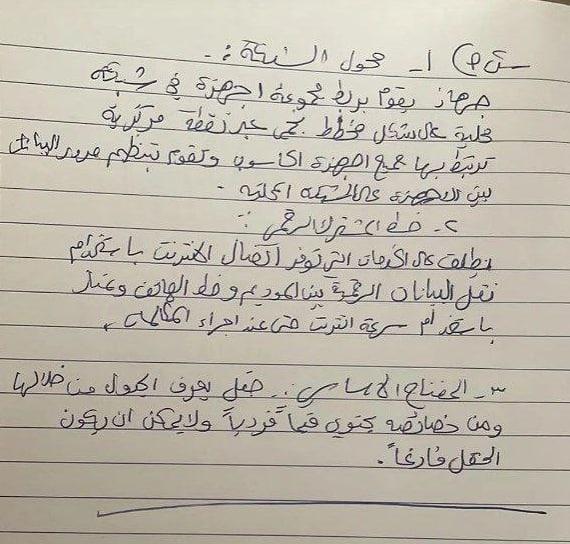 ١- محول الشبكة :-
جهاز يقوم بربط مجموعة اجهزة في شبكة
محلية على شكل مخطط نجمي عبر نقطة مركزية
ترتبط بها جميع اجهزة الحاسوب وتقوم بتنظيم مرور البيانات
بين الاجهزة على الشبكة المحلية .
٢- خط المشترك الرقمي :
يطلق على الخدمات التي توفر اتصال الانترنت باستخدام
نقل البيانات الرقمية بين المودم وخط الهاتف ويمتاز
باستخدام سرعة انترنت حتى عند اجراء المكالمة .
٣- المفتاح الاساسي : حقل يعرف الجدول من خلالها
ومن خصائصه يحتوي قيماً فردياً ولايمكن ان يكون
الحقل فارغاً .